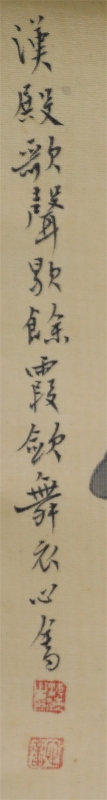 漢殿歌聲歇餘霞斂舞衣心畬